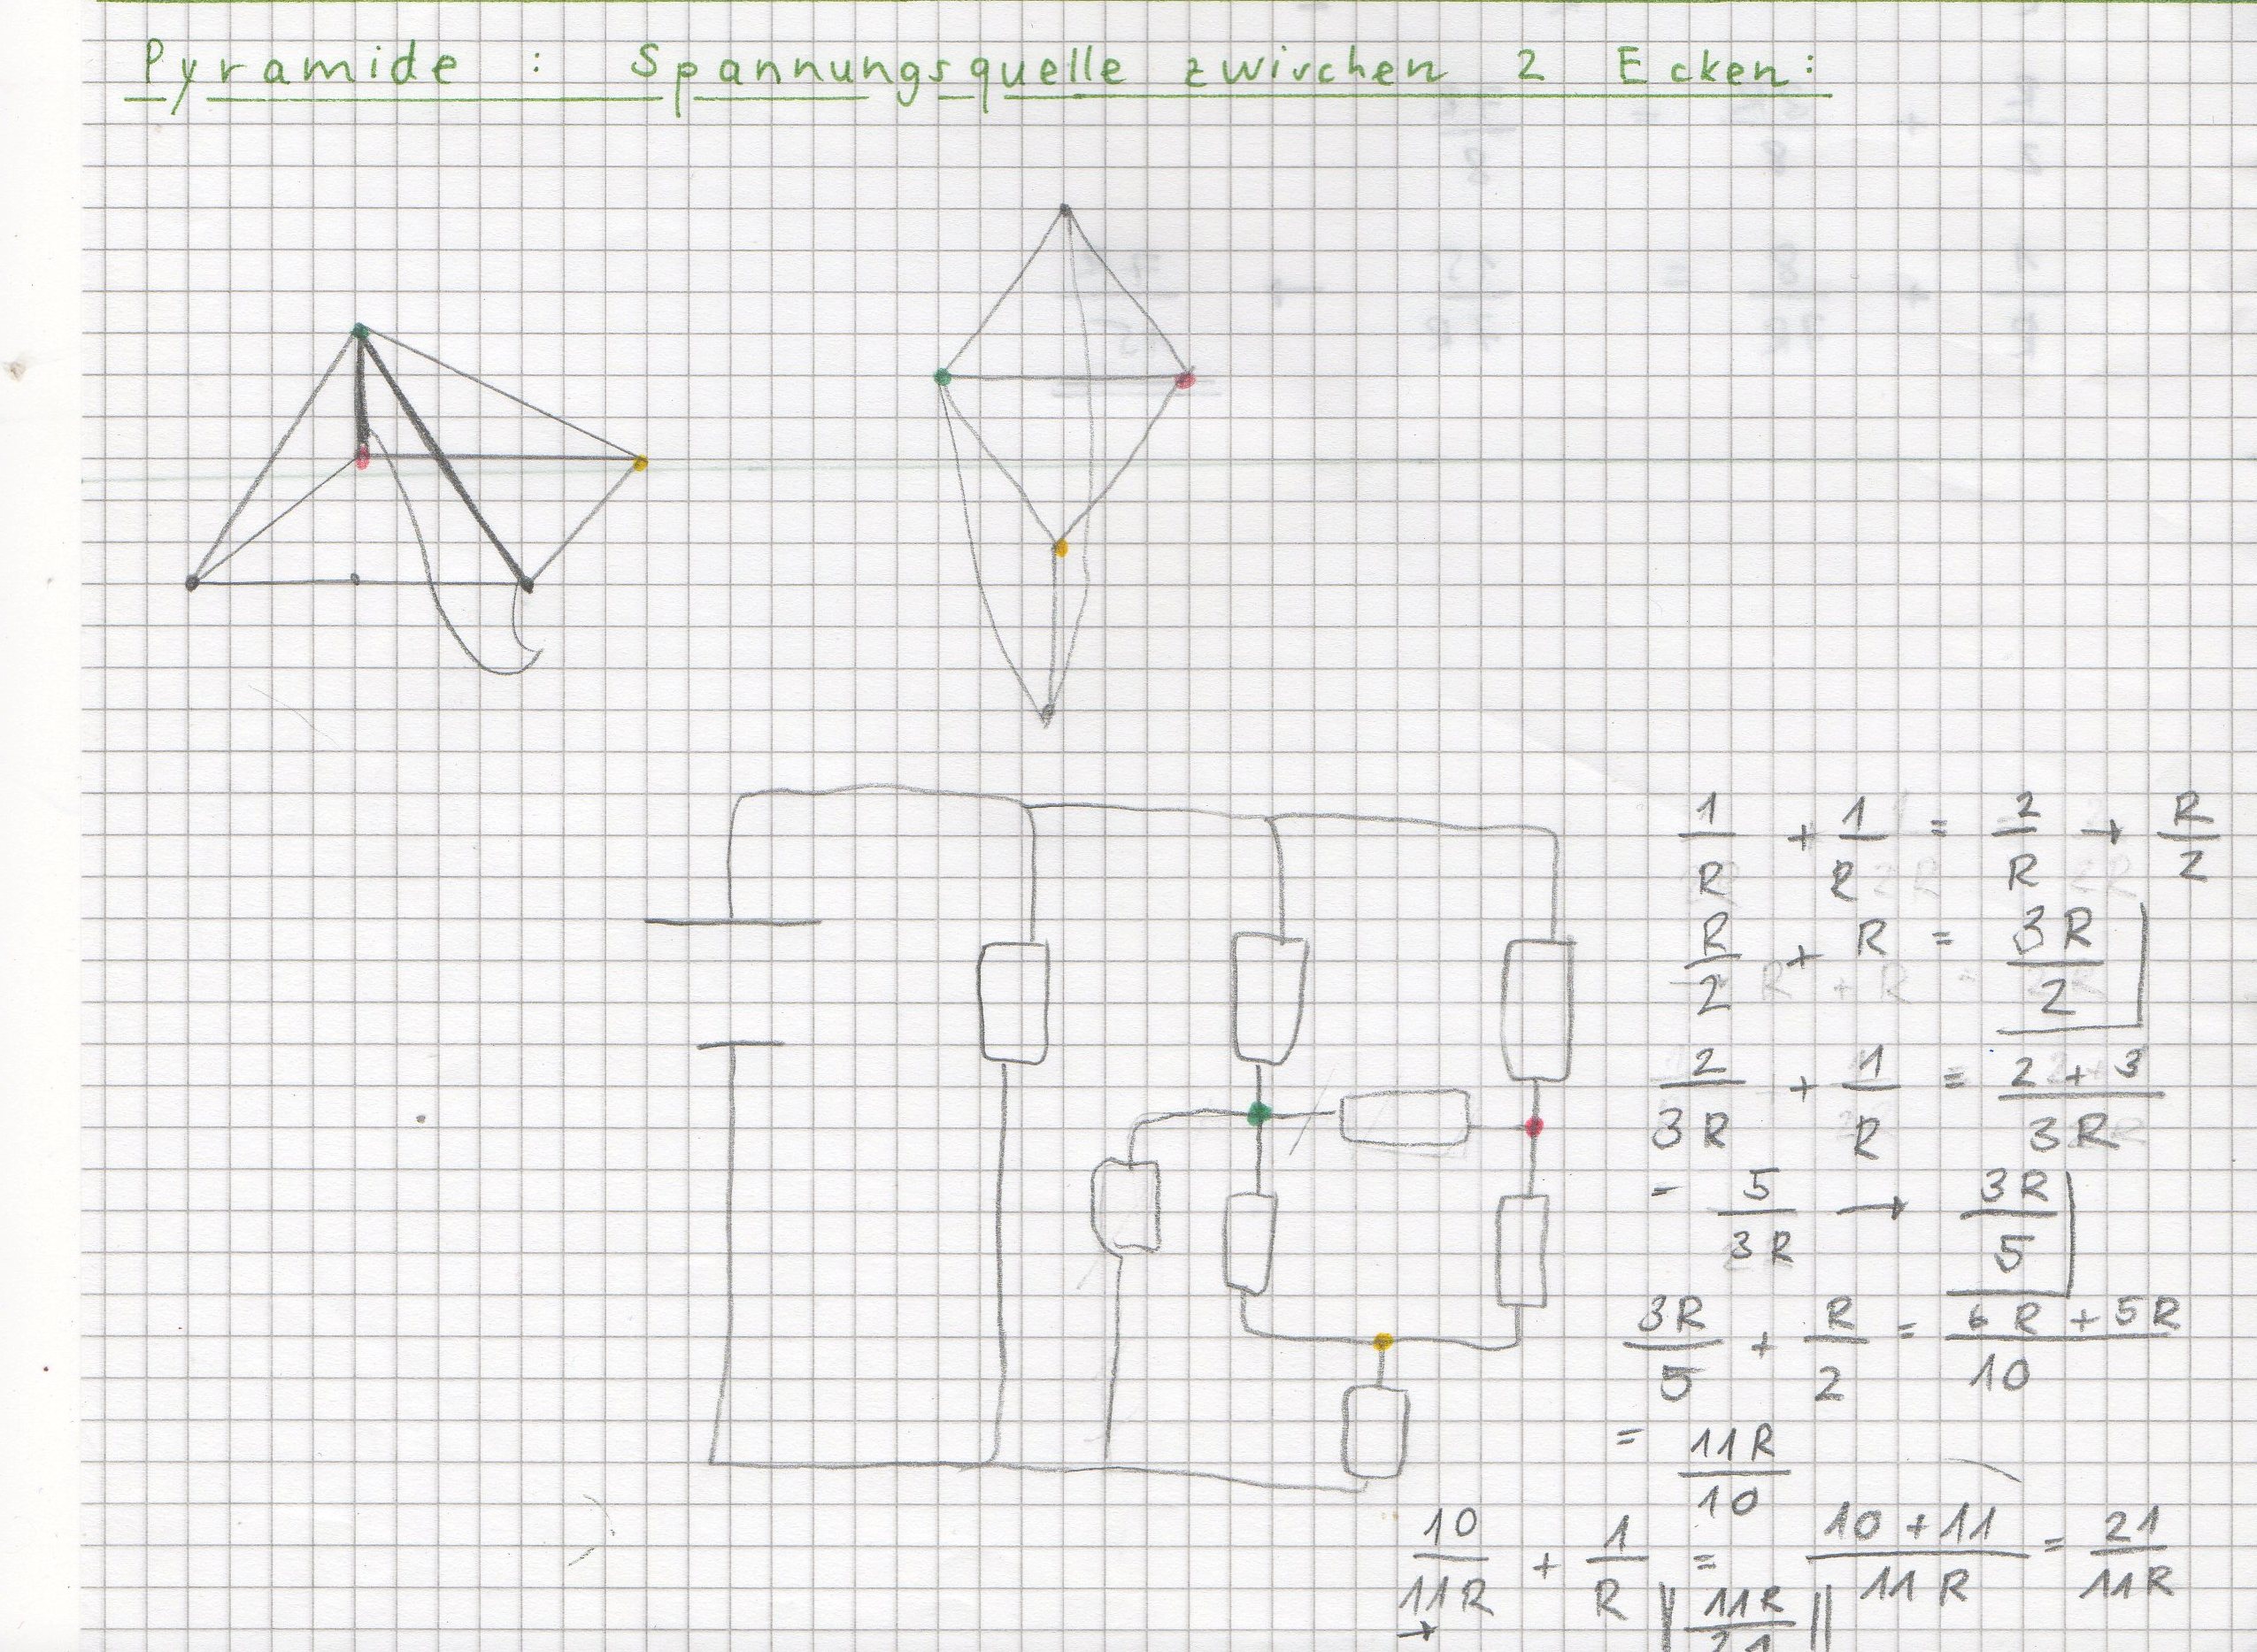 Pyramide : Spannungsquelle zwischen 2 Ecken:
1/R + 1/R = 2/R → R/2
R/2 + R = 3R/2
2/3R + 1/R = 2+3/3R
= 5/3R → 3R/5
3R/5 + R/2 = 6R+5R/10
= 11R/10
10/11R + 1/R = 10+11/11R = 21/11R
→ || 11R/21 ||